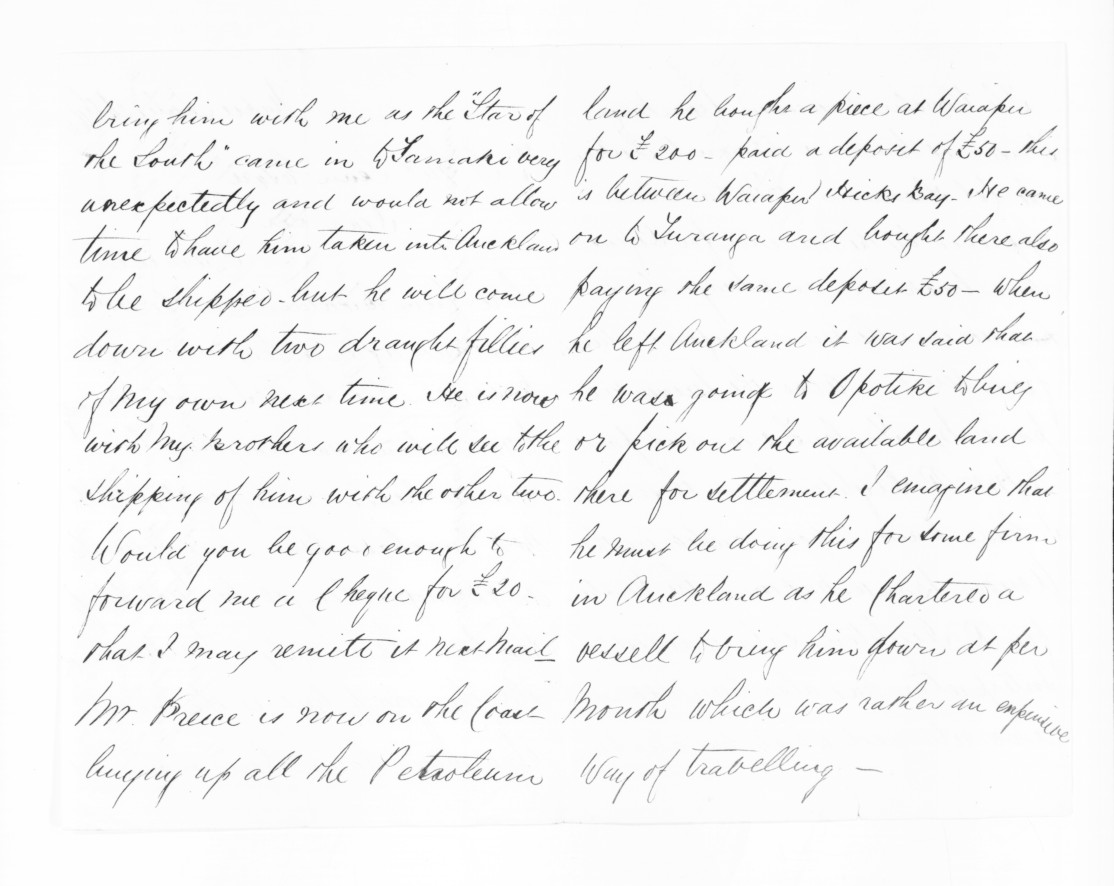 bring him with me as the "Star of
the South" came in to Tamaki very
unexpectedly and would not allow
time to have him taken into Auckland
to be shipped - but he will come
down with two draught fillies
of my own next time. He is now
with my Brothers who will see to the
shipping of him with the other two.
Would you be good enough to
forward me a Cheque for £20 -
that I may remitt it next Mail -
Mr. Preece is now on the Coast
buying up all the Petroleum
land he bought a piece at Waiapu
for £200 - paid a deposit of £50 - this
is between Waiapu & Hicks Bay - He came
on to Turanga and bought there also
paying the same deposit £50 - When
he left Auckland it was said that
he was going to Opotiki to buy
or pick out the available land
there for settlement. I emagine that
he must be doing this for some firm
in Auckland as he Chartered a
vessell to bring him down at per
Month which was rather an expensive
Way of travelling -